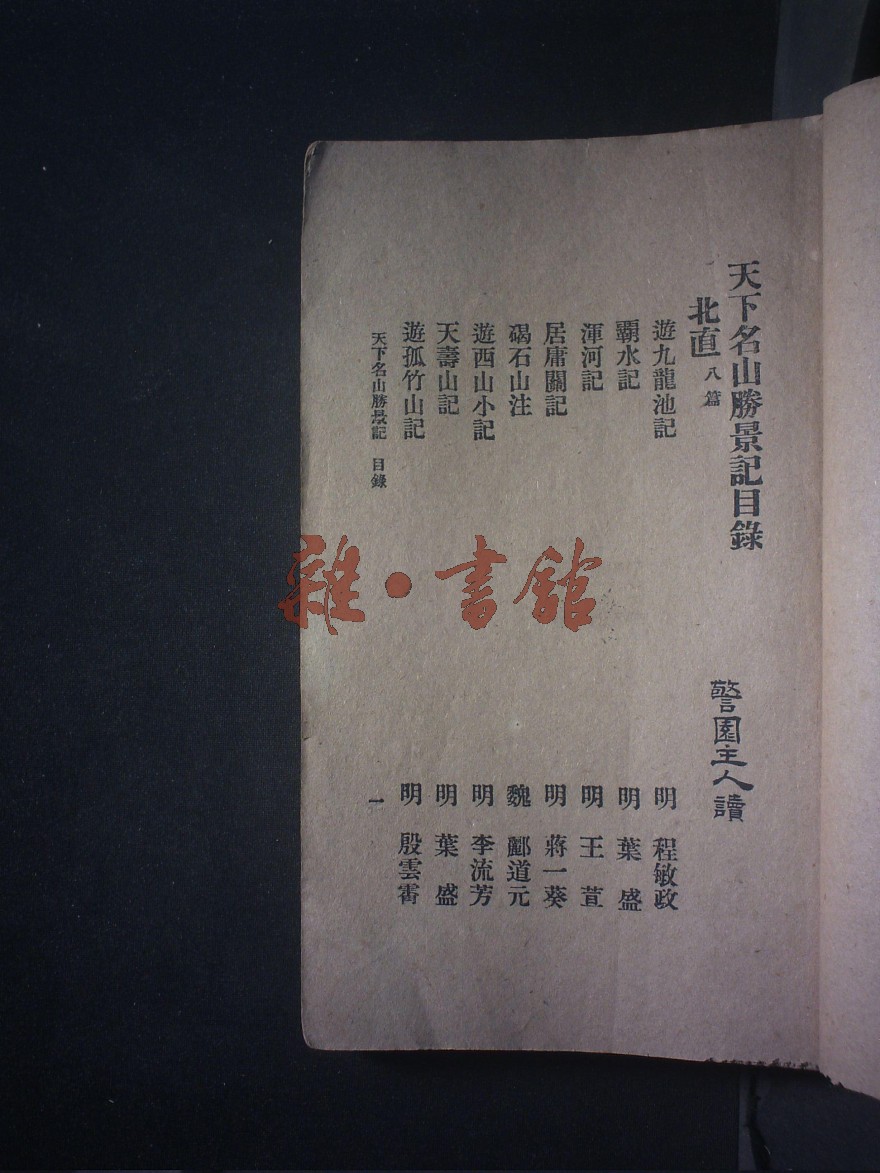 天下名山勝景記目錄
警園主人讀
北直 八篇
遊九龍池記 明 程敏政
霸水記 明 葉盛
渾河記 明 王萱
居庸關記 明 蔣一葵
碣石山注 魏 酈道元
遊西山小記 明 李流芳
天壽山記 明 葉盛
遊孤竹山記 明 殷雲霄
天下名山勝景記 目錄 一
雜·書館